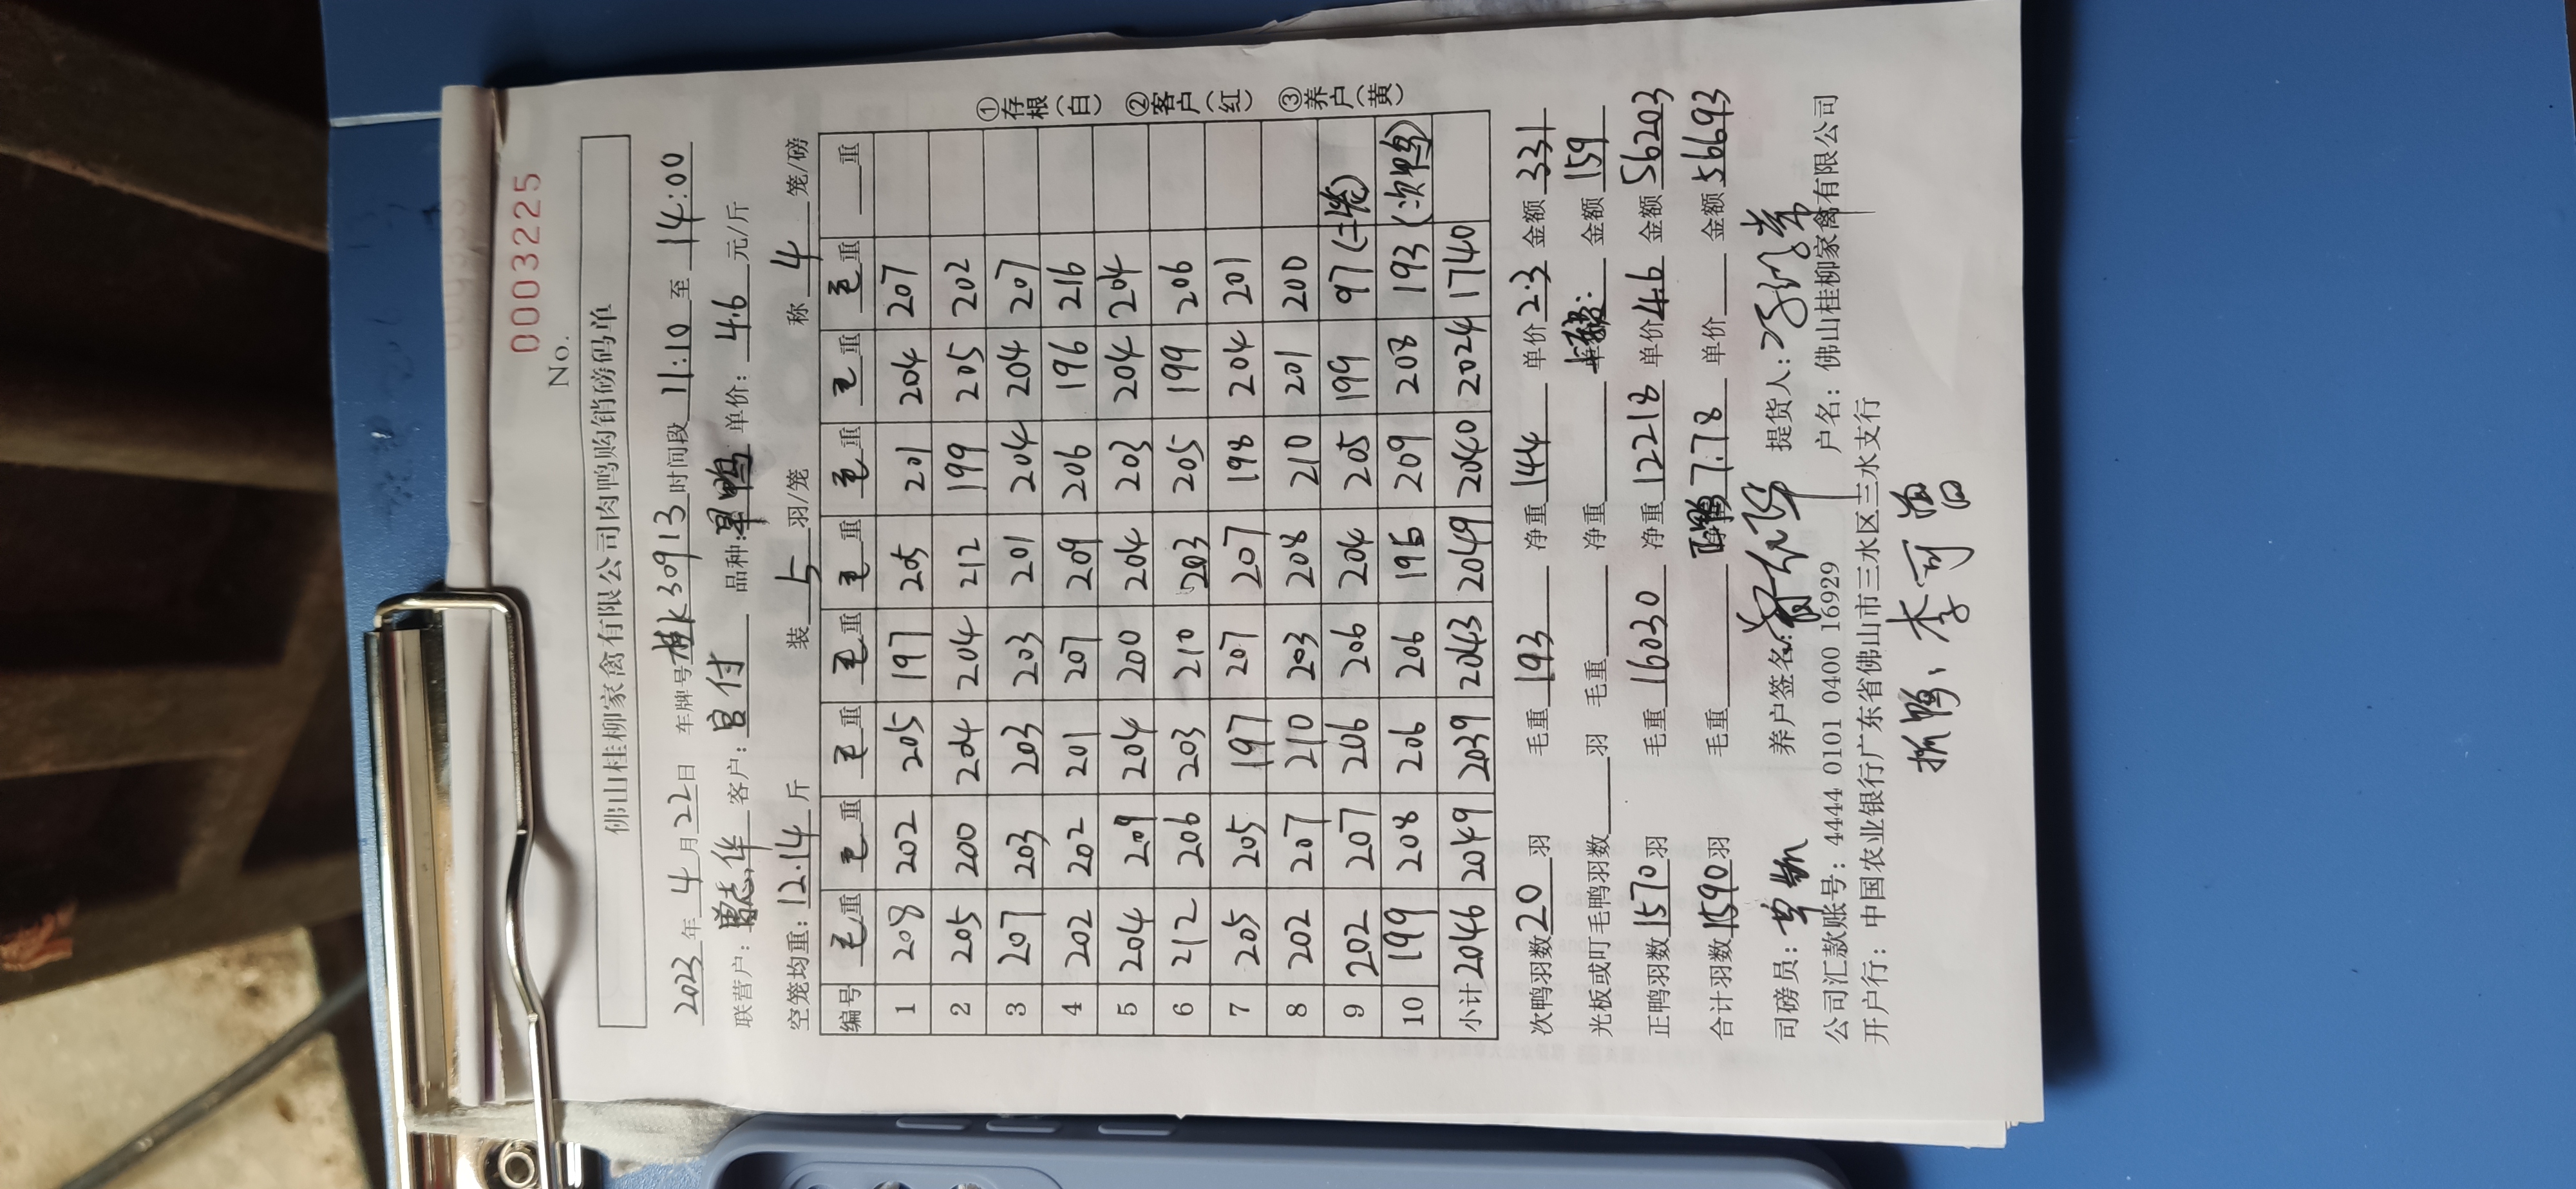 No. 0003225
佛山桂柳家禽有限公司肉鸭购销磅码单
2023年4月22日 车牌号桂K30913时间段11:10至14:00
联营户:曾志华 客户:宫付 品种: 单价:4.6元/斤
空笼均重:12.14斤 装5羽/笼 称4笼/磅
编号 毛重 毛重 毛重 毛重 毛重 毛重 毛重 毛重 重
1 208 202 205 197 205 201 204 207
2 205 200 204 204 212 199 205 202
3 207 203 203 203 201 204 204 207
4 202 202 201 207 209 206 196 216
5 204 209 204 200 204 203 204 204
6 212 206 203 210 203 205 199 206
7 205 205 197 207 207 198 204 201
8 202 207 210 203 208 210 201 200
9 202 207 206 206 204 205 199 97(二笼)
10 199 208 206 206 196 209 208 193(次鸭)
小计 2046 2049 2039 2043 2049 2040 2024 1740
①存根(白) ②客户(红) ③养户(黄)
次鸭羽数20羽 毛重193 净重144 单价2.3 金额331
光板或叮毛鸭羽数 羽 毛重 净重 金额159
正鸭羽数1570羽 毛重16030 净重12218 单价4.6 金额56203
合计羽数1590羽 毛重 7.78 单价 金额56693
司磅员: 养户签名: 提货人:
公司汇款账号:4444 0101 0400 16929 户名:佛山桂柳家禽有限公司
开户行:中国农业银行广东省佛山市三水区三水支行
抓鸭:李可